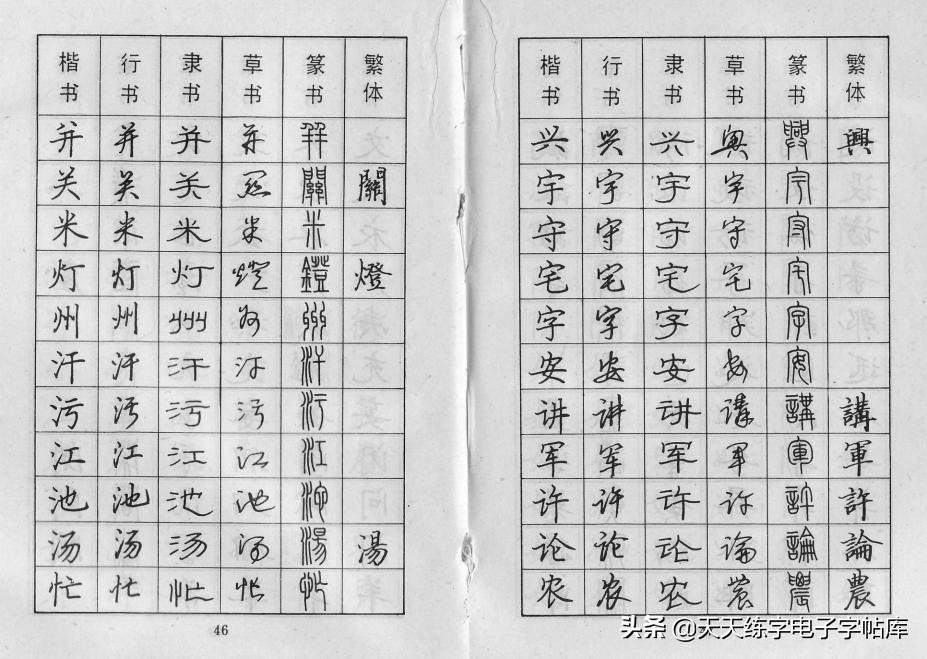 楷书 行书 隶书 草书 篆书 繁体
并 并 并 并 并
关 关 关 关 關 關
米 米 米 米 米
灯 灯 灯 燈 鐙 燈
州 州 州 州 州
汗 汗 汗 汗 汗
污 污 污 污 污
江 江 江 江 江
池 池 池 池 池
汤 汤 汤 汤 湯 湯
忙 忙 忙 忙 忙
46
楷书 行书 隶书 草书 篆书 繁体
兴 兴 兴 興 興 興
宇 宇 宇 宇 宇
守 守 守 守 守
宅 宅 宅 宅 宅
字 字 字 字 字
安 安 安 安 安
讲 讲 讲 講 講 講
军 军 军 军 軍 軍
许 许 许 许 許 許
论 论 论 論 論 論
农 农 农 農 農 農
头条 @天天练字电子字帖库